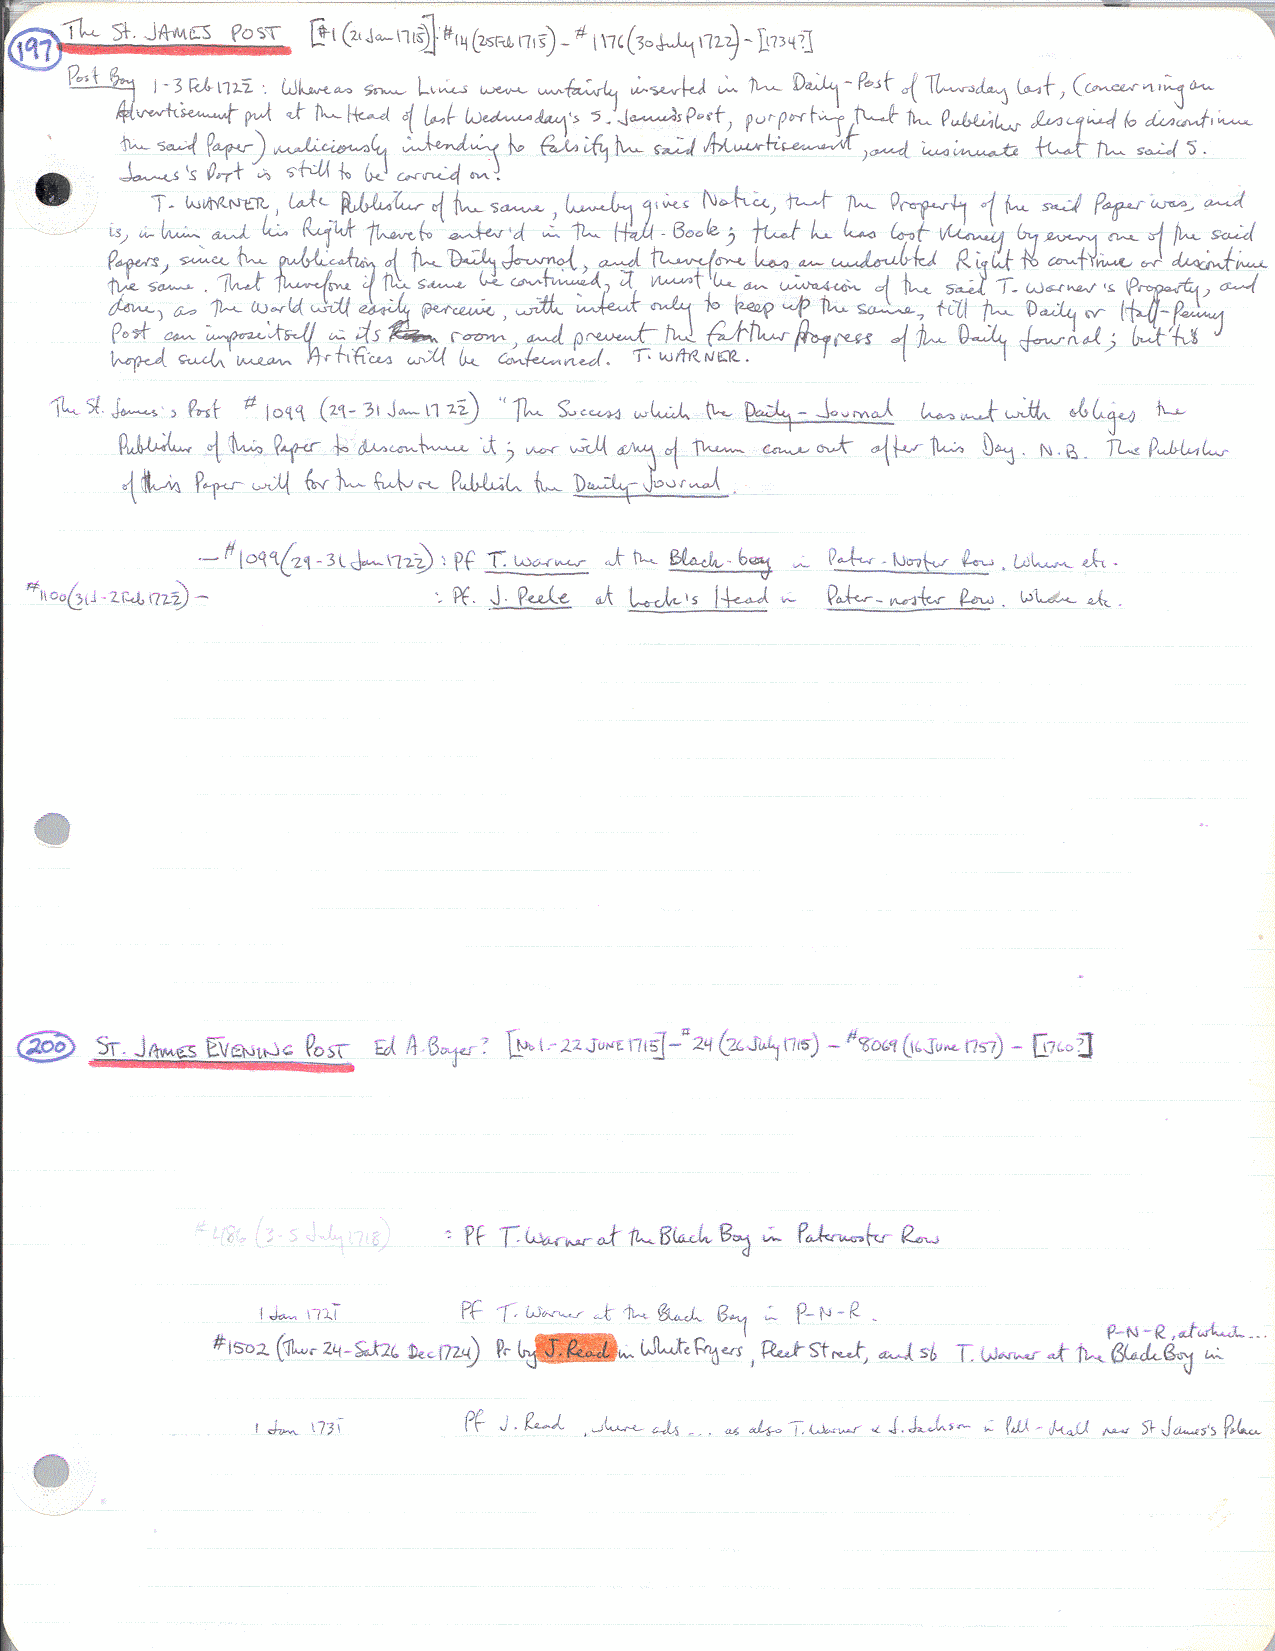 197 The St. JAMES POST [#1 (21 Jan 1715)] · #14 (25 Feb 1715) – #1176 (30 July 1722) – [1734?]
Post Boy 1-3 Feb 172½ : Whereas some Lines were unfairly inserted in the Daily-Post of Thursday last, (concerning an
Advertisement put at the Head of last Wednesday's S. James's Post, purporting that the Publisher designed to discontinue
the said Paper) maliciously intending to falsify the said Advertisement, and insinuate that the said S.
James's Post is still to be carried on:
T. WARNER, late Publisher of the same, hereby gives Notice, that the Property of the said Paper was, and
is, in him and his Right thereto enter'd in the Hall-Book; that he has lost Money by every one of the said
Papers, since the publication of the Daily Journal, and therefore has an undoubted Right to continue or discontinue
the same. That therefore if the same be continued, it must be an invasion of the said T. Warner's Property, and
done, as the World will easily perceive, with intent only to keep up the same, till the Daily or Half-Penny
Post can impose itself in its room, and prevent the farther Progress of the Daily Journal; but 'tis
hoped such mean Artifices will be contemned. T. WARNER.
The St. James's Post #1099 (29-31 Jan 172½) "The Success which the Daily-Journal has met with obliges the
Publisher of this Paper to discontinue it; nor will any of them come out after this Day. N.B. The Publisher
of this Paper will for the future Publish the Daily-Journal.
– #1099 (29-31 Jan 172½) : Pf T. Warner at the Black-boy in Pater-Noster Row. Where etc.
#1100 (31J-2 Feb 172½) – : Pf. J. Peele at Lock's Head in Pater-noster Row. Where etc.
200 ST. JAMES EVENING POST Ed A. Boyer? [No 1.- 22 JUNE 1715] – #24 (26 July 1715) – #8069 (16 June 1757) – [1760?]
#486 (3-5 July 1718) : Pf T. Warner at the Black Boy in Paternoster Row
1 Jan 172 Pf T. Warner at the Black Boy in P-N-R.
P-N-R, at which...
#1502 (Thur 24-Sat 26 Dec 1724) Pr by J. Read in White Fryers, Fleet Street, and sb T. Warner at the Black Boy in
1 Jan 173 Pf J. Read, where ads ... as also T. Warner & J. Jackson in Pell-Mall near St James's Palace